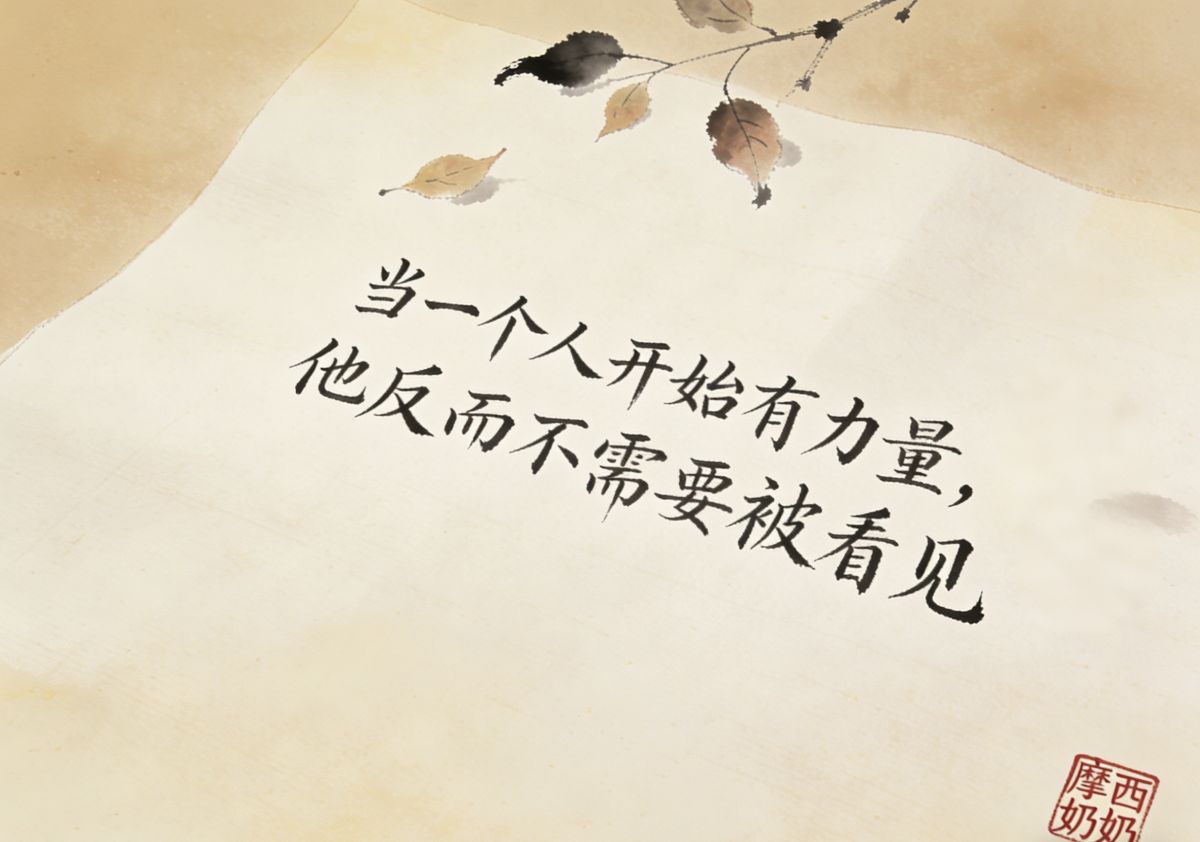 当一个人开始有力量，
他反而不需要被看见
西奶奶
摩奶